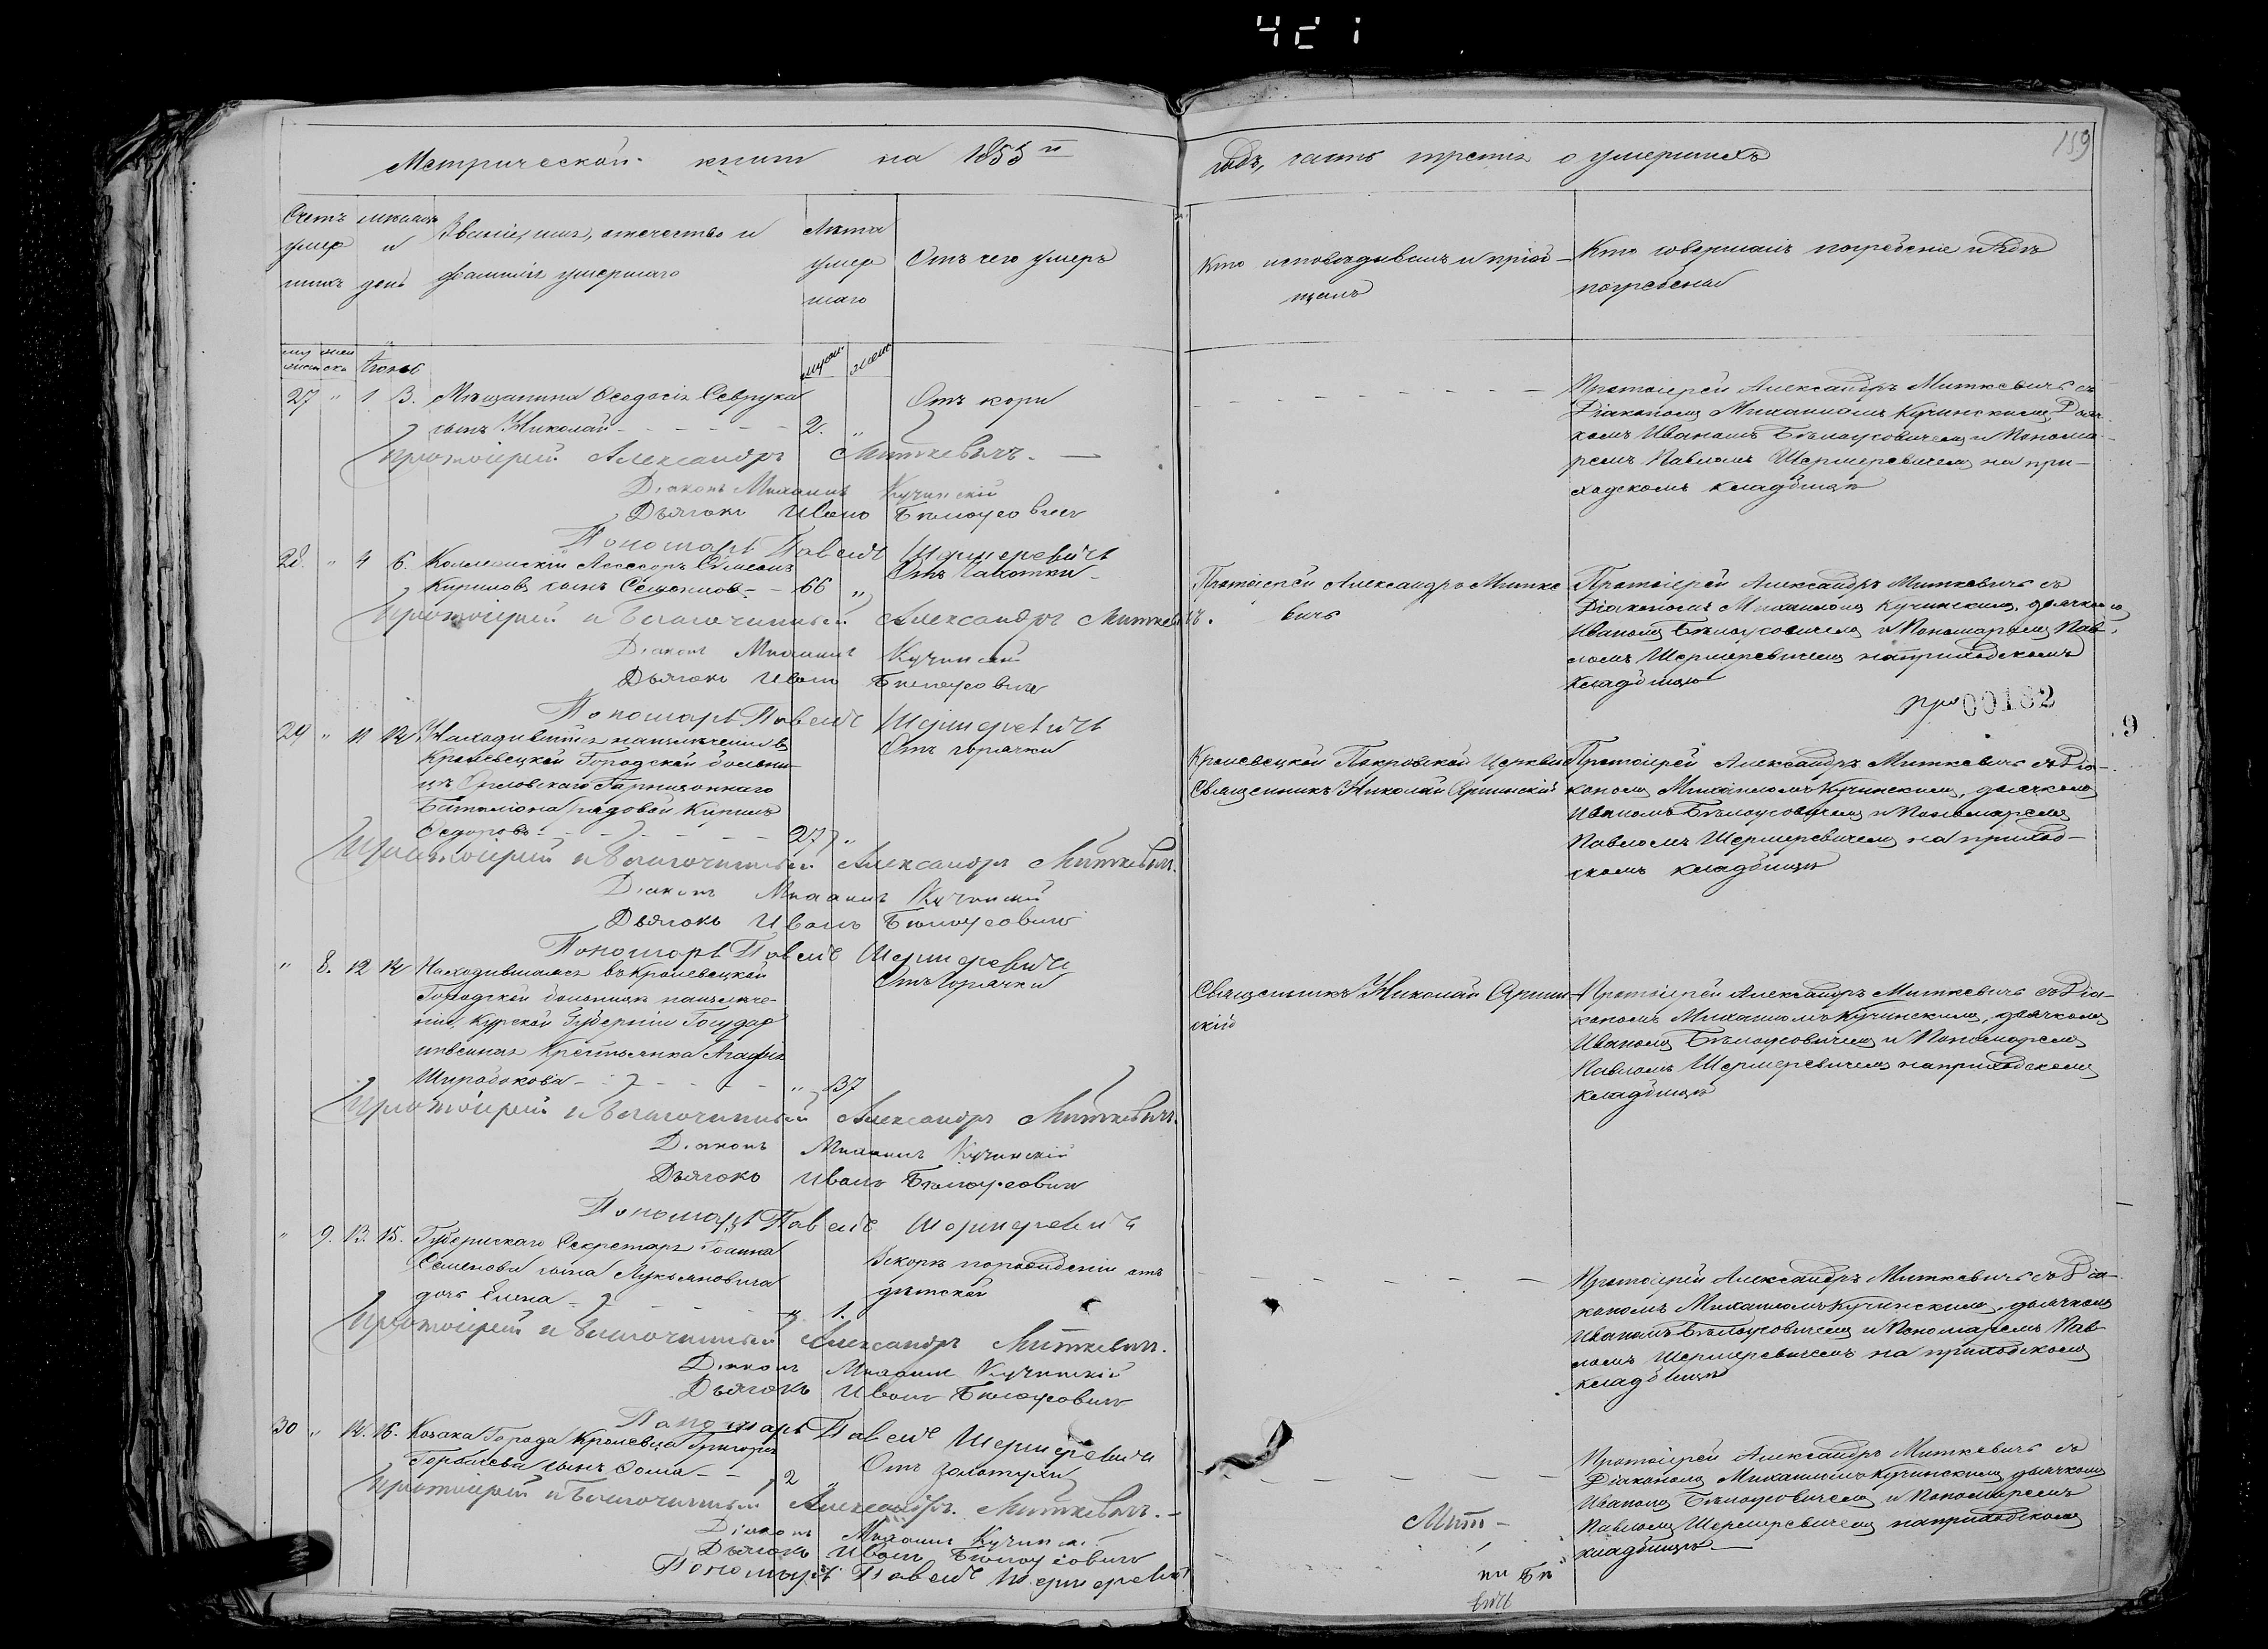 159
Метрической книги на 1855й
годъ, часть третья о умершихъ
Счетъ умершихъ
мѣсяцъ и день
Званіе, имя, отечество и фамилія умершаго
Лѣта умершаго
Отъ чего умеръ
Кто исповѣдывалъ и пріобщалъ
Кто совершалъ погребеніе и гдѣ погребены
27 " 1 3. Мѣщанина Ѳеодосія Севрука
сынъ Николай - - - - - 2. "
Отъ кори
Протоіерей Александръ Миткевичъ съ
Діакономъ Михаиломъ Кучинскимъ, Дьяч-
комъ Иваномъ Бѣлоусовичемъ и Понома-
ремъ Павломъ Шермеревичемъ на при-
ходскомъ кладбищѣ
Протоіерей Александръ Миткевичъ. —
Діаконъ Михаилъ Кучинскій
Дьячокъ Иванъ Бѣлоусовичъ
Пономарь Павелъ Шермеревичъ
28. " 4 6. Коллежскій Асессоръ Симеонъ
Кириловъ сынъ - - 66 "
Отъ чахотки
Протоіерей Александръ Митке
вичъ
Протоіерей Александръ Миткевичъ съ
Діакономъ Михаиломъ Кучинскимъ, дьячкомъ
Иваномъ Бѣлоусовичемъ и Пономаремъ Пав-
ломъ Шермеревичемъ на приходскомъ
кладбищѣ
Протоіерей и Благочинный Александръ Миткевичъ.
Діаконъ Михаилъ Кучинскій
Дьячокъ Иванъ Бѣлоусовичъ
Пономарь Павелъ Шермеревичъ
00182
9
29 " 11 14 Находившійся на излѣченіи въ
Кролевецкой Городской больни-
цѣ Орловскаго Гарнизоннаго
Баталіона рядовой Кирилъ
Ѳедоровъ - - - - - 27 "
Отъ горячки
Кролевецкой Покровской Церкви
Священникъ Николай
Протоіерей Александръ Миткевичъ съ Діа-
кономъ Михаиломъ Кучинскимъ, дьячкомъ
Иваномъ Бѣлоусовичемъ и Пономаремъ
Павломъ Шермеревичемъ на приход-
скомъ кладбищѣ
Протоіерей и Благочинный Александръ Миткевичъ.
Діаконъ Михаилъ Кучинскій
Дьячокъ Иванъ Бѣлоусовичъ
Пономарь Павелъ Шермеревичъ
" 8. 12 14 Находившаяся въ Кролевецкой
Городской больницѣ на излѣче-
ніи, Курской Губерніи Государ
ственная Крестьянка Агафія
Широбокова - - - - - " 37
Отъ горячки
Священникъ Николай
Протоіерей Александръ Миткевичъ съ Діа-
кономъ Михаиломъ Кучинскимъ, дьячкомъ
Иваномъ Бѣлоусовичемъ и Пономаремъ
Павломъ Шермеревичемъ на приходскомъ
кладбищѣ
Протоіерей и Благочинный Александръ Миткевичъ.
Діаконъ Михаилъ Кучинскій
Дьячокъ Иванъ Бѣлоусовичъ
Пономарь Павелъ Шермеревичъ
" 9. 13. 15. Губернскаго Секретаря Іоанна
Семенова сына Лукьяновича
дочь Елена - - - - - " 1.
Вскорѣ по рожденіи отъ
дѣтской
Протоіерей Александръ Миткевичъ съ Діа-
кономъ Михаиломъ Кучинскимъ, дьячкомъ
Иваномъ Бѣлоусовичемъ и Пономаремъ Пав-
ломъ Шермеревичемъ на приходскомъ
кладбищѣ
Протоіерей и Благочинный Александръ Миткевичъ.
Діаконъ Михаилъ Кучинскій
Дьячокъ Иванъ Бѣлоусовичъ
Пономарь Павелъ Шермеревичъ
30 " 14. 16. Козака Города Кролевца Григорія
Горбачева сынъ Ѳома - - 2 "
Отъ золотухи
Протоіерей Александръ Миткевичъ съ
Діакономъ Михаиломъ Кучинскимъ, дьячкомъ
Иваномъ Бѣлоусовичемъ и Пономаремъ
Павломъ Шермеревичемъ на приходскомъ
кладбищѣ —
Протоіерей и Благочинный Александръ Миткевичъ. -
Діаконъ Михаилъ Кучинскій
Дьячокъ Иванъ Бѣлоусовичъ
Пономарь Павелъ Шермеревичъ
Мит-
вичъ